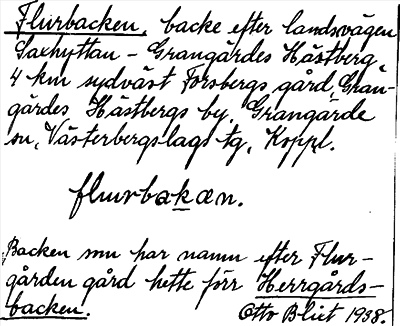 Flurbacken, backe efter landsvägen
Saxhyttan - Grangärdes Hästberg,
4 km sydväst Forsbergs gård, Gran-
gärdes Hästbergs by, Grangärde
sn, Västerbergslags tg, Koppl.
flurbakæn.
Backen som har namn efter Flur-
gården gård hette förr Herrgårds-
backen.
Otto Blixt 1938.